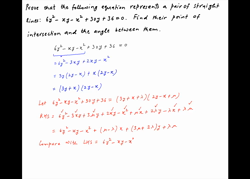 Prove that the following equation represents a pair of straight
lines: 6y² - xy - x² + 3x + y + 36 = 0. Find their point of
intersection and the angle between them.
6y² - xy - x² + 3x + y + 36 = 0
= 6y² - 3xy + 2xy - x²
= 3y (2y - x) + x (2y - x)
= (3y + x) (2y - x)
Let 6y² - xy - x² + 3x + y + 36 = (3y + x + λ) (2y - x + μ)
RHS = 6y² - 3xy + 3μy + 2xy - x² + μx + 2λy - λx + λμ
= 6y² - xy - x² + (μ - λ) x + (3μ + 2λ) y + λμ
Compare with LHS = 6y² - xy - x²